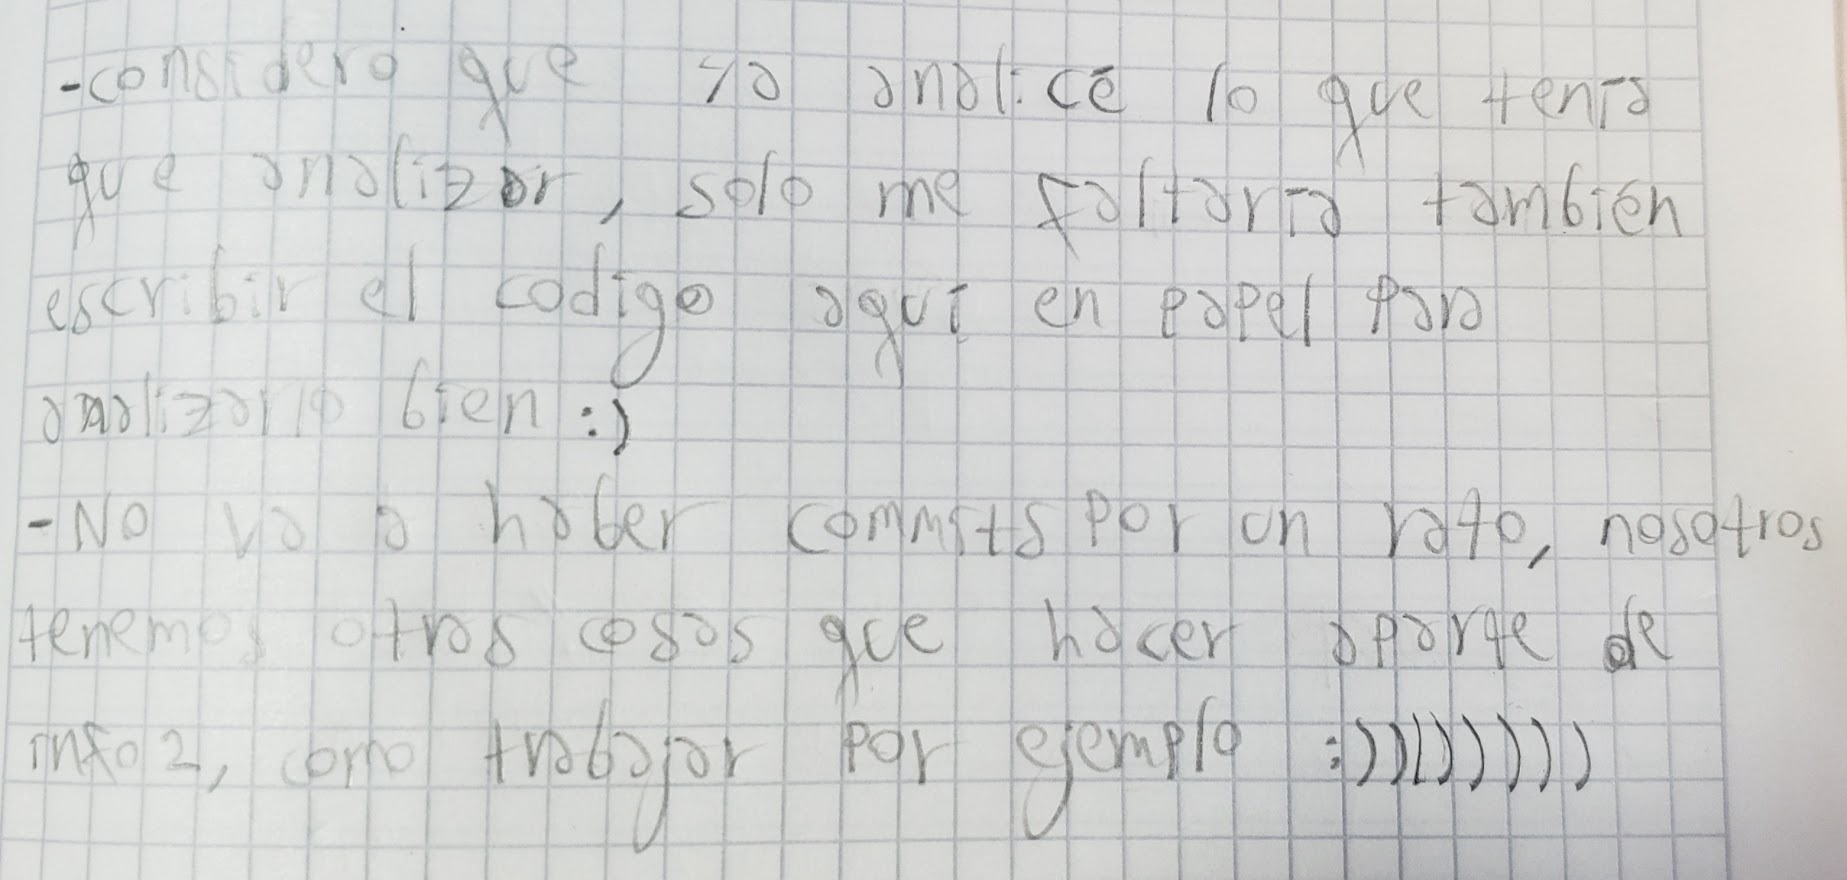 -considero que ya analicé lo que tenía
que analizar, solo me faltaría también
escribir el codigo aquí en papel para
analizarlo bien :)
-No va a haber commits por un rato, nosotros
tenemos otras cosas que hacer aparte de
info2, como trabajar por ejemplo :)))))))))